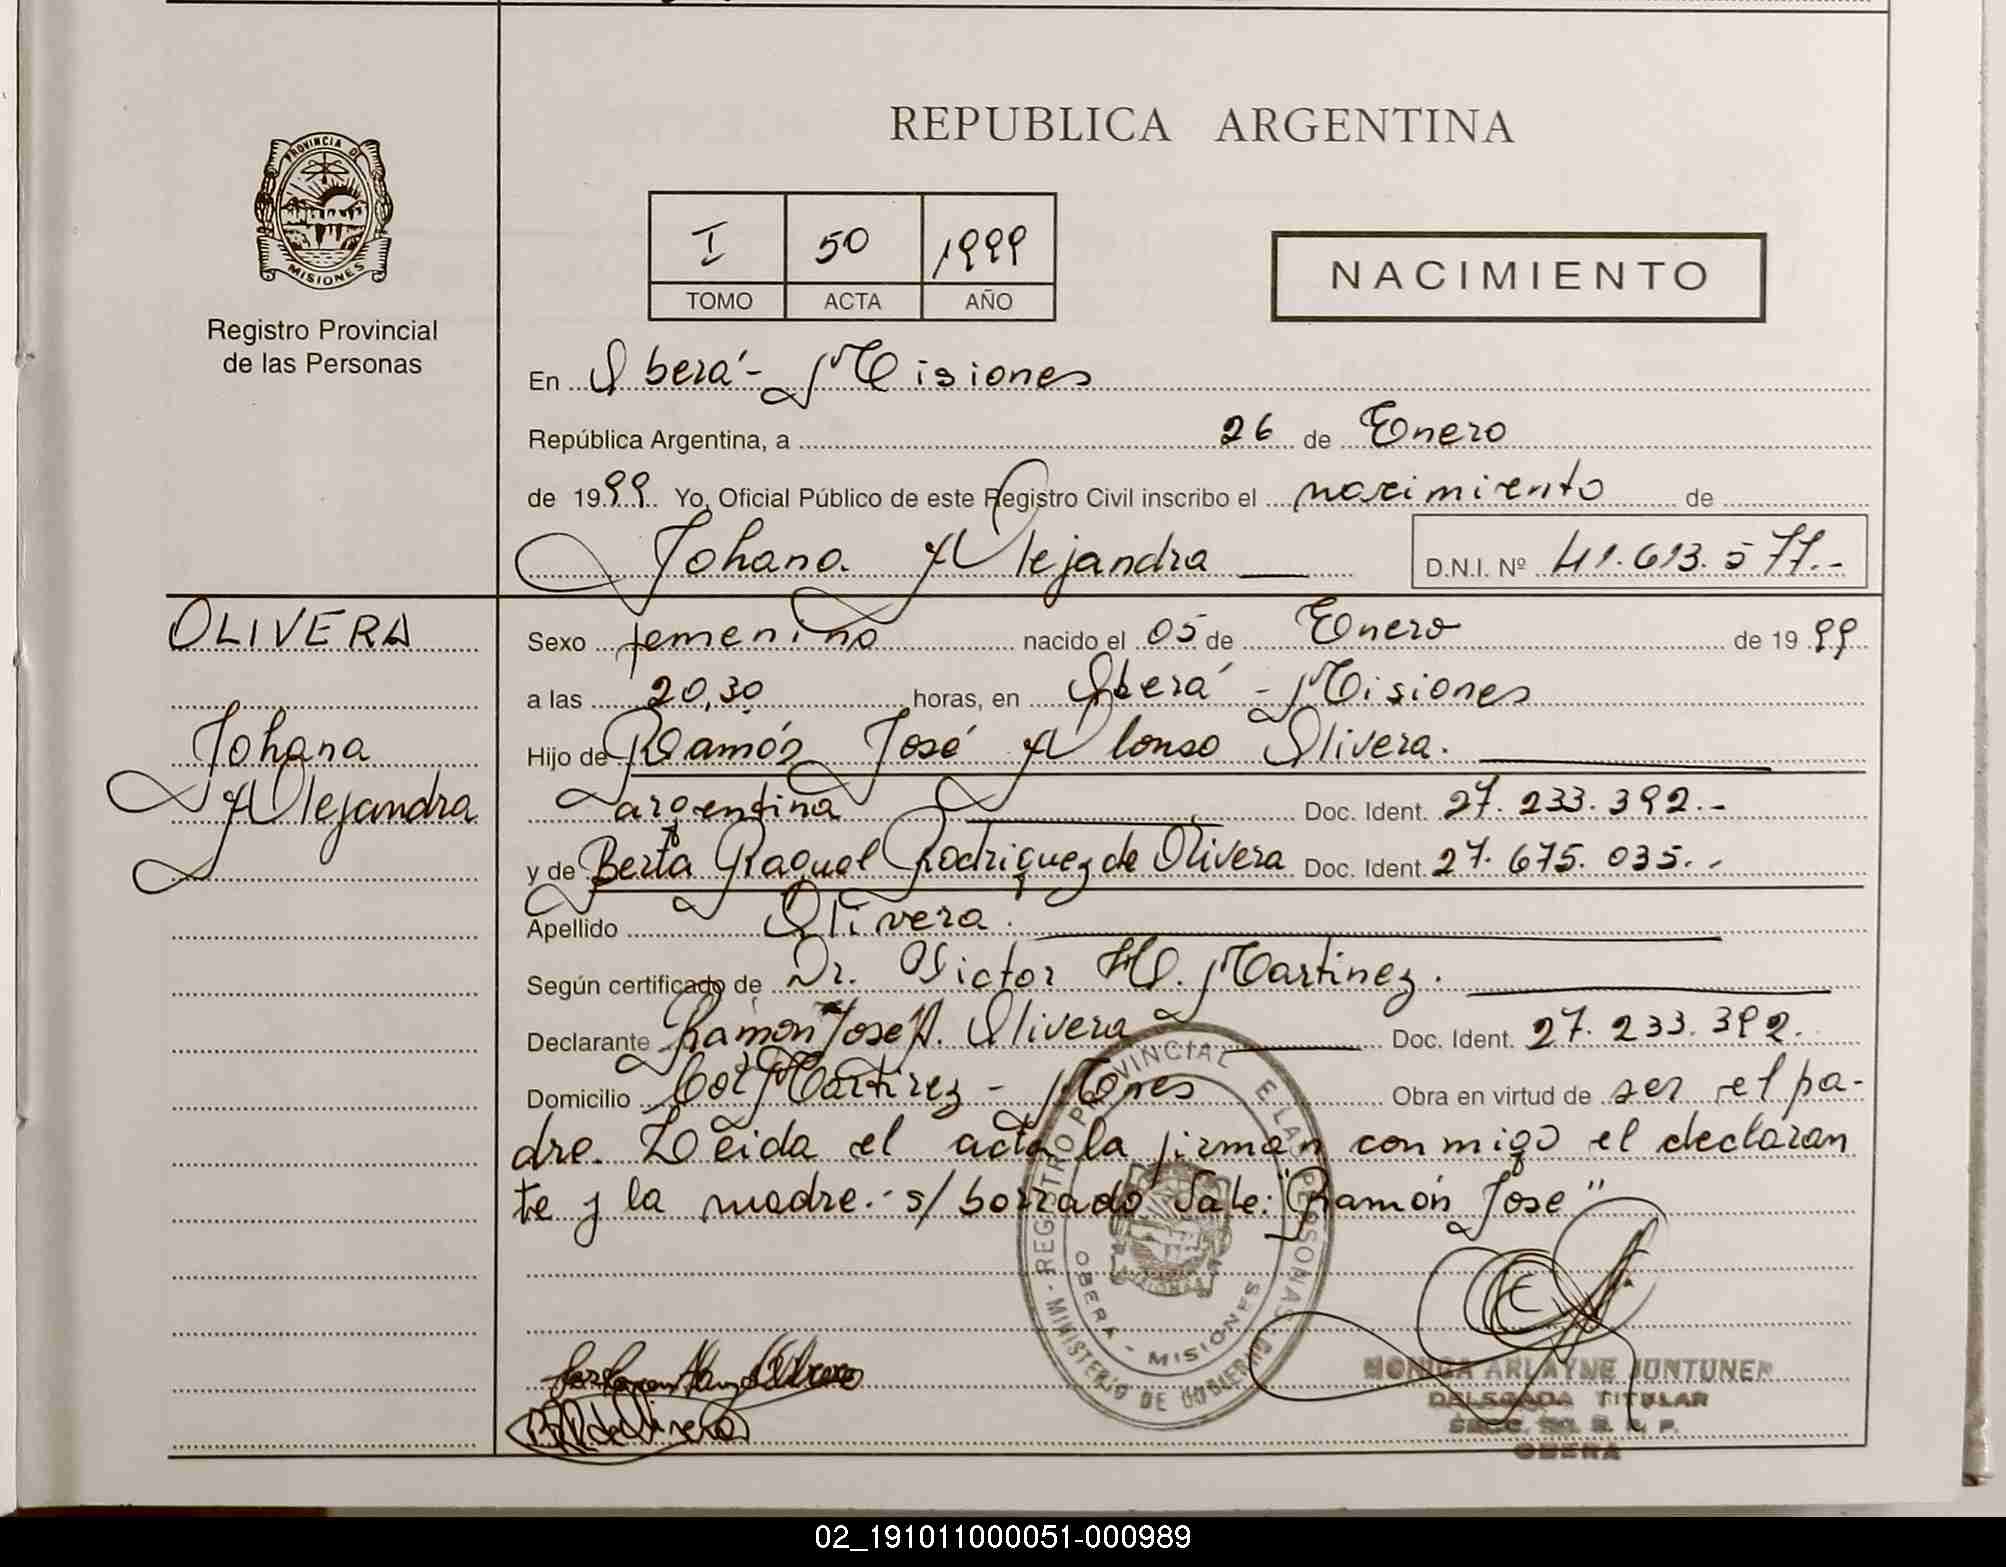 REPUBLICA ARGENTINA
PROVINCIA DE
MISIONES
Registro Provincial
de las Personas
I 50 1999
TOMO ACTA AÑO
NACIMIENTO
En Oberá - Misiones
República Argentina, a 26 de Enero
de 1999. Yo, Oficial Público de este Registro Civil inscribo el nacimiento de
Johana Alejandra D.N.I. Nº 41.613.577.-
OLIVERA
Johana
Alejandra
Sexo femenino nacido el 05 de Enero de 1999
a las 20,30 horas, en Oberá - Misiones
Hijo de Ramón José Alonso Olivera.
argentina Doc. Ident. 27.233.392.-
y de Berta Raquel Rodriguez de Olivera Doc. Ident. 27.675.035.-
Apellido Olivera.
Según certificado de Dr. Victor H. Martinez.
Declarante Ramón José A. Olivera Doc. Ident. 27.233.392.
Domicilio Col Martirez - Mnes Obra en virtud de ser el pa-
dre. Leida el acta la firman conmigo el declaran
te y la madre.- s/ borrado Vale: "Ramón Jose"
REGISTRO PROVINCIAL E LAS PERSONAS
- MINISTERIO DE GOBIERNO
OBERA - MISIONES
MONICA ARLAYNE JUNTUNEN
DELEGADA TITULAR
OBERA
02_191011000051-000989